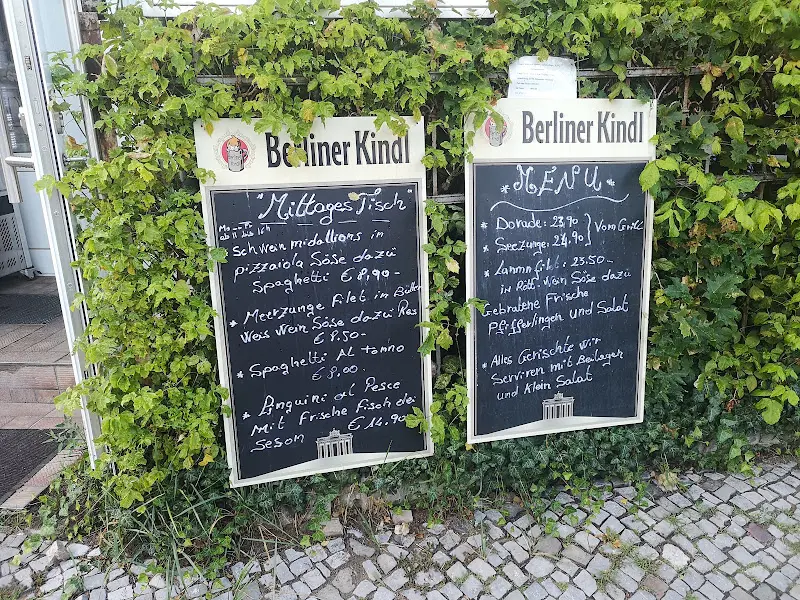 Berliner Kindl
"Mittages Tisch"
Mo - Fr
ab 11 bis 16h
Schwein midallions in
pizzaiola Söse dazü
Spaghetti € 8,90-
* Meerzunge Filet in
Weis Wein Söse dazü
€ 8.50-
* Spaghetti Al tonno
€ 8,00-
* Linguini al Pesce
Mit Frische Fisch dei
Sesom € 14.90-
Berliner Kindl
* MENU *
* Dorade: 23,90
* Seezunge: 24.90 } Vom Grill
* Lamm filet: 23.50-
in Rott Wein Söse dazü
Gebratene Frische
Pfifferlingen und Salat
* Alles Gerischte wir
Serviren mit Beilagen
und Klein Salat